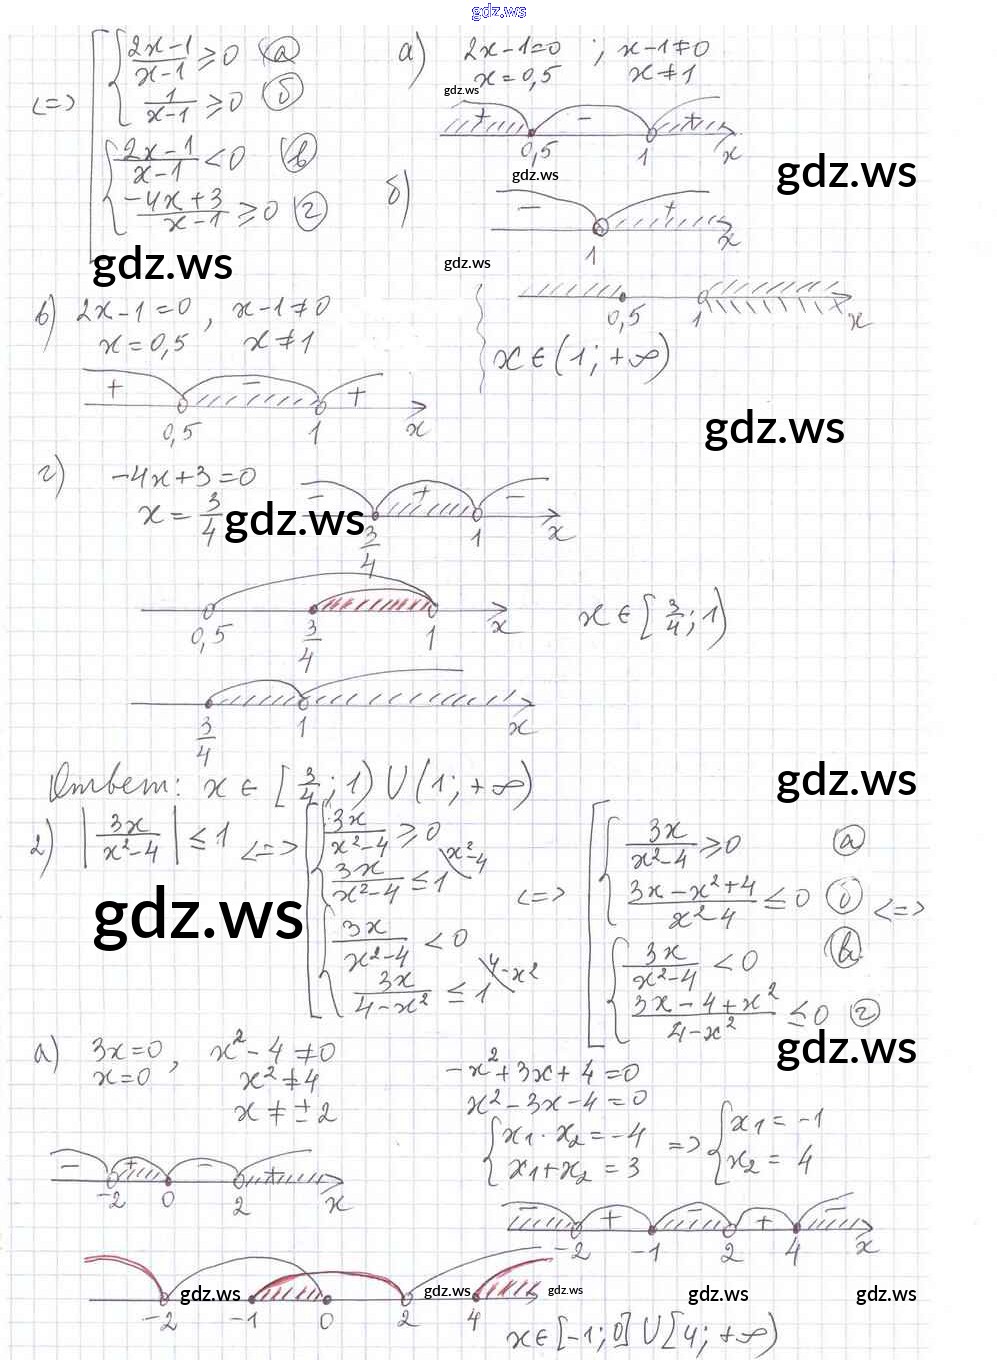 gdz.ws
<=> [ { (2x-1)/(x-1) ≥ 0 (а)
{ 1/(x-1) ≥ 0 (б)
{ (2x-1)/(x-1) < 0 (в)
{ (-4x+3)/(x-1) ≥ 0 (г)
gdz.ws
а) 2x-1=0 ; x-1≠0
x=0,5 x≠1
gdz.ws
+ - +
0,5 1 x
gdz.ws
gdz.ws
б)
- +
1 x
gdz.ws
0,5 1 x
x∈(1; +∞)
в) 2x-1=0 , x-1≠0
x=0,5 x≠1
+ - +
0,5 1 x
gdz.ws
г) -4x+3=0
x = 3/4
gdz.ws
- + -
3/4 1 x
0,5 3/4 1 x
x∈[3/4; 1)
3/4 1 x
Ответ: x∈[3/4; 1)∪(1; +∞)
gdz.ws
2) |3x/(x²-4)| ≤ 1 <=> [ { 3x/(x²-4) ≥ 0
{ 3x/(x²-4) ≤ 1 \x²-4
{ 3x/(x²-4) < 0
{ 3x/(4-x²) ≤ 1 \4-x²
<=> [ { 3x/(x²-4) ≥ 0 (а)
{ (3x-x²+4)/(x²-4) ≤ 0 (б) <=>
{ 3x/(x²-4) < 0 (в)
{ (3x-4+x²)/(4-x²) ≤ 0 (г)
gdz.ws
gdz.ws
а) 3x=0 , x²-4≠0
x=0 x²≠4
x≠±2
-x²+3x+4=0
x²-3x-4=0
{ x₁·x₂=-4 => { x₁=-1
{ x₁+x₂=3 { x₂=4
- + - +
-2 0 2 x
- + - + -
-2 -1 2 4 x
gdz.ws gdz.ws gdz.ws gdz.ws gdz.ws
-2 -1 0 2 4
x∈[-1;0]∪[4;+∞)